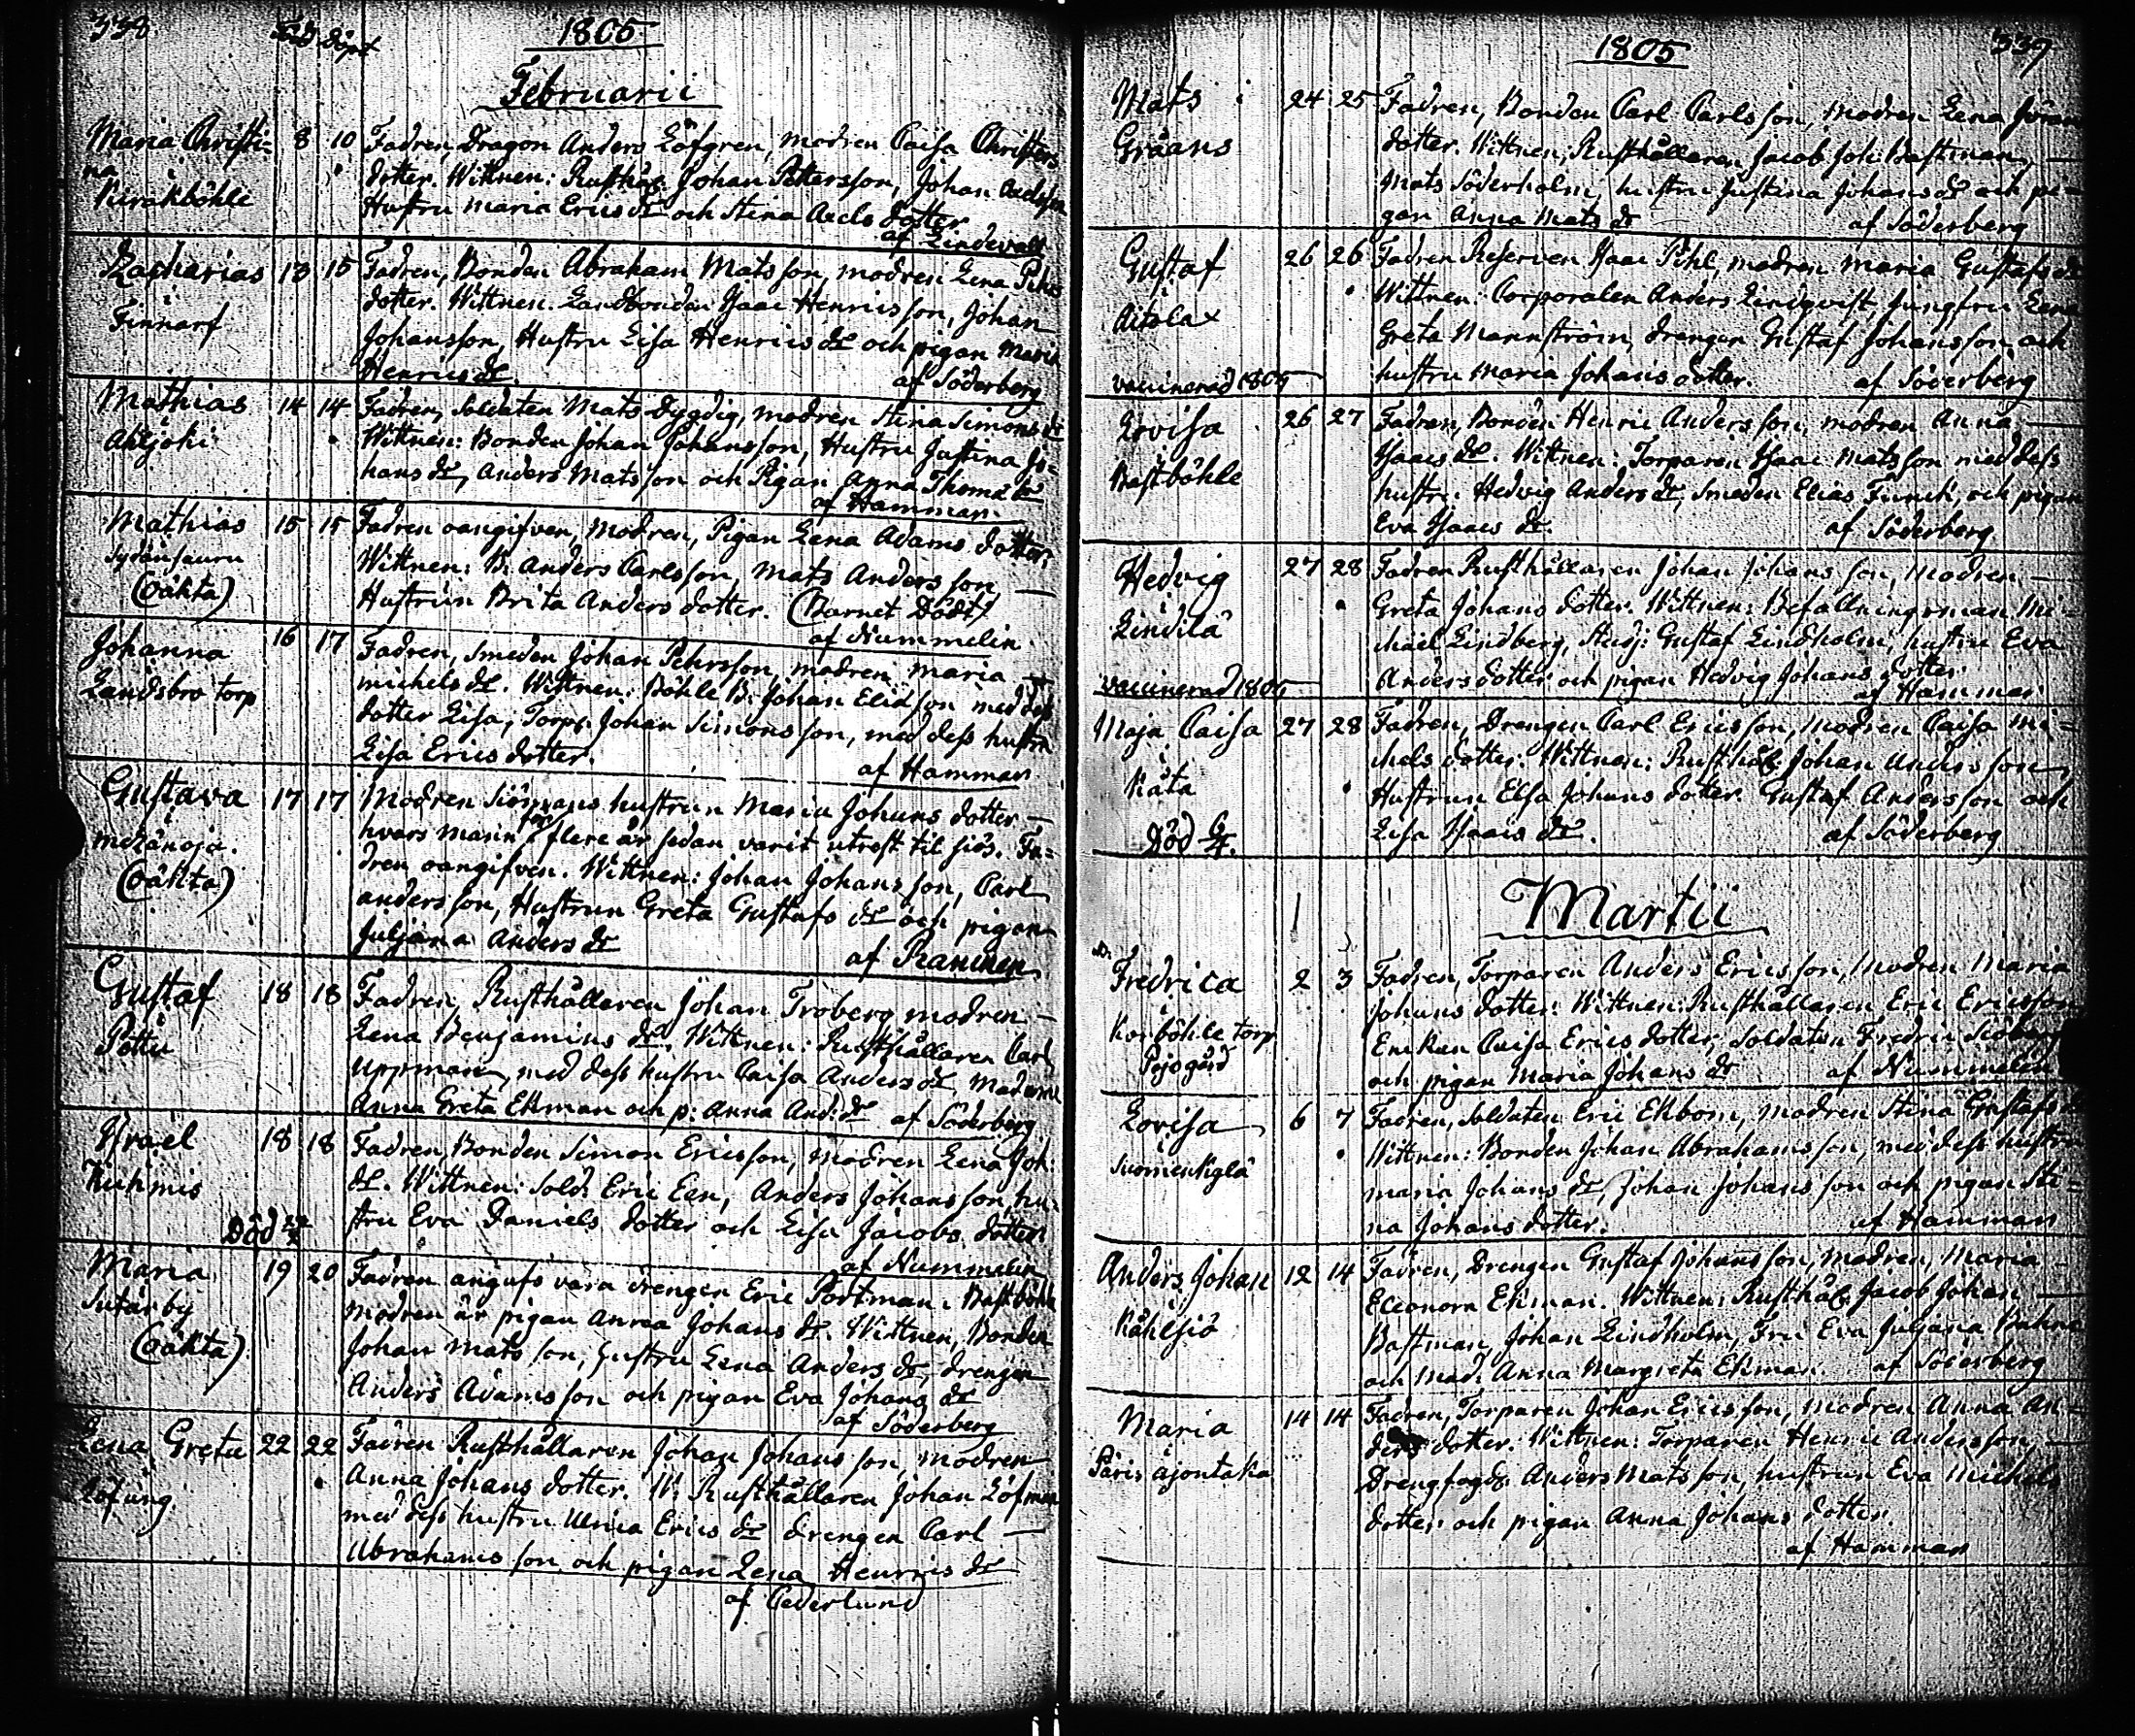 338
Född döpt
1805
Februarii
Maria Christi=
na
Kurakböhle
8 10
Fadren, Dragon Anders Löfgren, modren Caisa Christers
dotter. Wittnen: Rusthål. Johan Pettersson, Johan Axelsson
Hustru Maria Erics dr och Stina Axels dotter
af Lindevall
Zacharias
Finnarf
13 15
Fadren, Bonden Abraham Matsson, modren Lena Pehrs
dotter. Wittnen. Landbonden Isaac Henricsson, Johan
Johansson, Hustru Lisa Henrics dr och pigan Maria
Henrics dr.
af Söderberg
Mathias
Äijöki
14 14
Fadren, Soldaten Mats Dygdig, modren Stina Simons dr
Wittnen: Bonden Johan Johansson, Hustru Justina Jo=
hans dr, Anders Matsson och Pigan Anna Thomæ dr
af Hamman.
Mathias
Sydänsauru
(oäkta)
15 15
Fadren oangifven, Modren, Pigan Lena Adams dotter.
Wittnen: B: Anders Carlsson, Mats Andersson
Hustrun Brita Anders dotter. (Barnet Dödt)
af Nummelin
Johanna
Landsbro torp
16 17
Fadren, Smeden Johan Pehrsson, modren Maria
Michels dr. Wittnen: Böhle B: Johan Eliasson med dess
dotter Lisa, Torp: Johan Simonsson, med dess hustru
Lisa Erics dotter.
af Hamman
Gustava
i
(oäkta)
17 17
Modren Siömans hustrun Maria Johans dotter
hvars man för flere år sedan varit utrest til siös. Fa=
dren oangifven. Wittnen: Johan Johansson, Carl
andersson, Hustrun Greta Gustafs dr och pigan
Juljana Anders dr
af Rancken
Gustaf
i
Pöttu
18 18
Fadren, Rusthållaren Johan Troberg modren
Lena Benjamins dr. Wittnen: Rusthållaren Carl
Uppman, med dess hustru Caisa Anders dr, Madame
Anna Greta Ekman och p: Anna And: dr
af Söderberg
Israel
Kuhmis
Död 22/2
18 18
Fadren, Bonden Simon Ericsson, Modren Lena Joh:
dr. Wittnen: Sold: Eric Een, Anders Johansson, hu=
stru Eva Daniels dotter och Lisa Jacobs dotter
af Nummelin
Maria
Sutarby
(oäkta)
19 20
Fadren angafs vara drengen Eric Portman i Bastböhle
modren är pigan Anna Johans dr. Wittnen, Bonden
Johan Matsson, Hustru Lena Anders dr, drengen
Anders Adamsson och pigan Eva Johans dr
af Söderberg
Lena Greta
Löfung
22 22
Fadren Rusthållaren Johan Johansson, modren
Anna Johans dotter. W: Rusthållaren Johan Löfman
med dess hustru Ulrica Erics dr drengen Carl
Abrahamsson och pigan Lena Henrics dr
af Cederlund
1805
339
Mats i
Gråans
24 25
Fadren, Bonden Carl Carlsson, Modren Lena Jöran
dotter. Wittnen, Rusthållaren Jacob Joh: Bastman,
Mats Söderholm, hustru Justina Johans dr och pi=
gan Anna Mats dr
af Söderberg
Gustaf
i
Aitolax
vaccinerad 1805
26 26
Fadren Reserven Isaac Pihl, modren Maria Gustafs dr
Wittnen: Corporalen Anders Lindqvist, Jungfru Lena
Greta Mannström, drengen Gustaf Johansson, och
hustru Maria Johans dotter.
af Söderberg
Lovisa
i
Bastböhle
26 27
Fadren, Bonden Henric Andersson, modren Anna
Isaacs dr. Wittnen: Torparen Isaac Matsson med dess
hustru Hedvig Anders dr, Smeden Elias Funck, och pigan
Eva Isaacs dr.
af Söderberg
Hedvig
i
Lindilä
vaccinerad 1805
27 28
Fadren Rusthållaren Johan Johansson, Modren
Greta Johans dotter. Wittnen: Befallningsman Mi=
chael Lindberg, Studj: Gustaf Lindholm, hustru Eva
Anders dotter och pigan Hedvig Johans dotter
af Hamman
Maja Caisa
i
Räta
Död 6/4.
27 28
Fadren, Drengen Carl Ericsson, Modren Caisa Mi=
chels dotter. Wittnen: Rusthål. Johan Andersson,
Hustrun Elsa Johans dotter. Gustaf Andersson och
Lisa Isaacs dr.
af Söderberg
Martii
Fredrica
i
Korböhle torp
Pojogård
2 3
Fadren, Torparen Anders Ericsson, Modren Maria
Johans dotter. Wittnen Rusthållaren Eric Ericsson
Enkan Caisa Erics dotter, Soldaten Fredric Siöberg
och pigan Maria Johans dr
af Nummelin
Lovisa
Suomenkylä
6 7
Fadren, Soldaten Eric Ekbom, modren Stina Gustafs dr
Wittnen: Bonden Johan Abrahamsson, med dess hustru
Maria Johans dr, Johan Johansson och pigan Sti=
na Johans dotter.
af Hamman
Anders Johan
i
Kåhlsjö
12 14
Fadren, Drengen Gustaf Johansson, Modren, Maria
Eleonora Ekman. Wittnen, Rusthål. Jacob Johan
Bastman, Johan Lindholm, Fru Eva Juljana
och Mad: Anna Margreta Ekman.
af Söderberg
Maria
14 14
Fadren, Torparen Johan Ericsson, modren Anna An=
ders dotter. Wittnen: Torparen Henric Andersson,
Drengfogd. Anders Matsson, hustrun Eva Michels
dotter och pigan Anna Johans dotter.
af Hamman